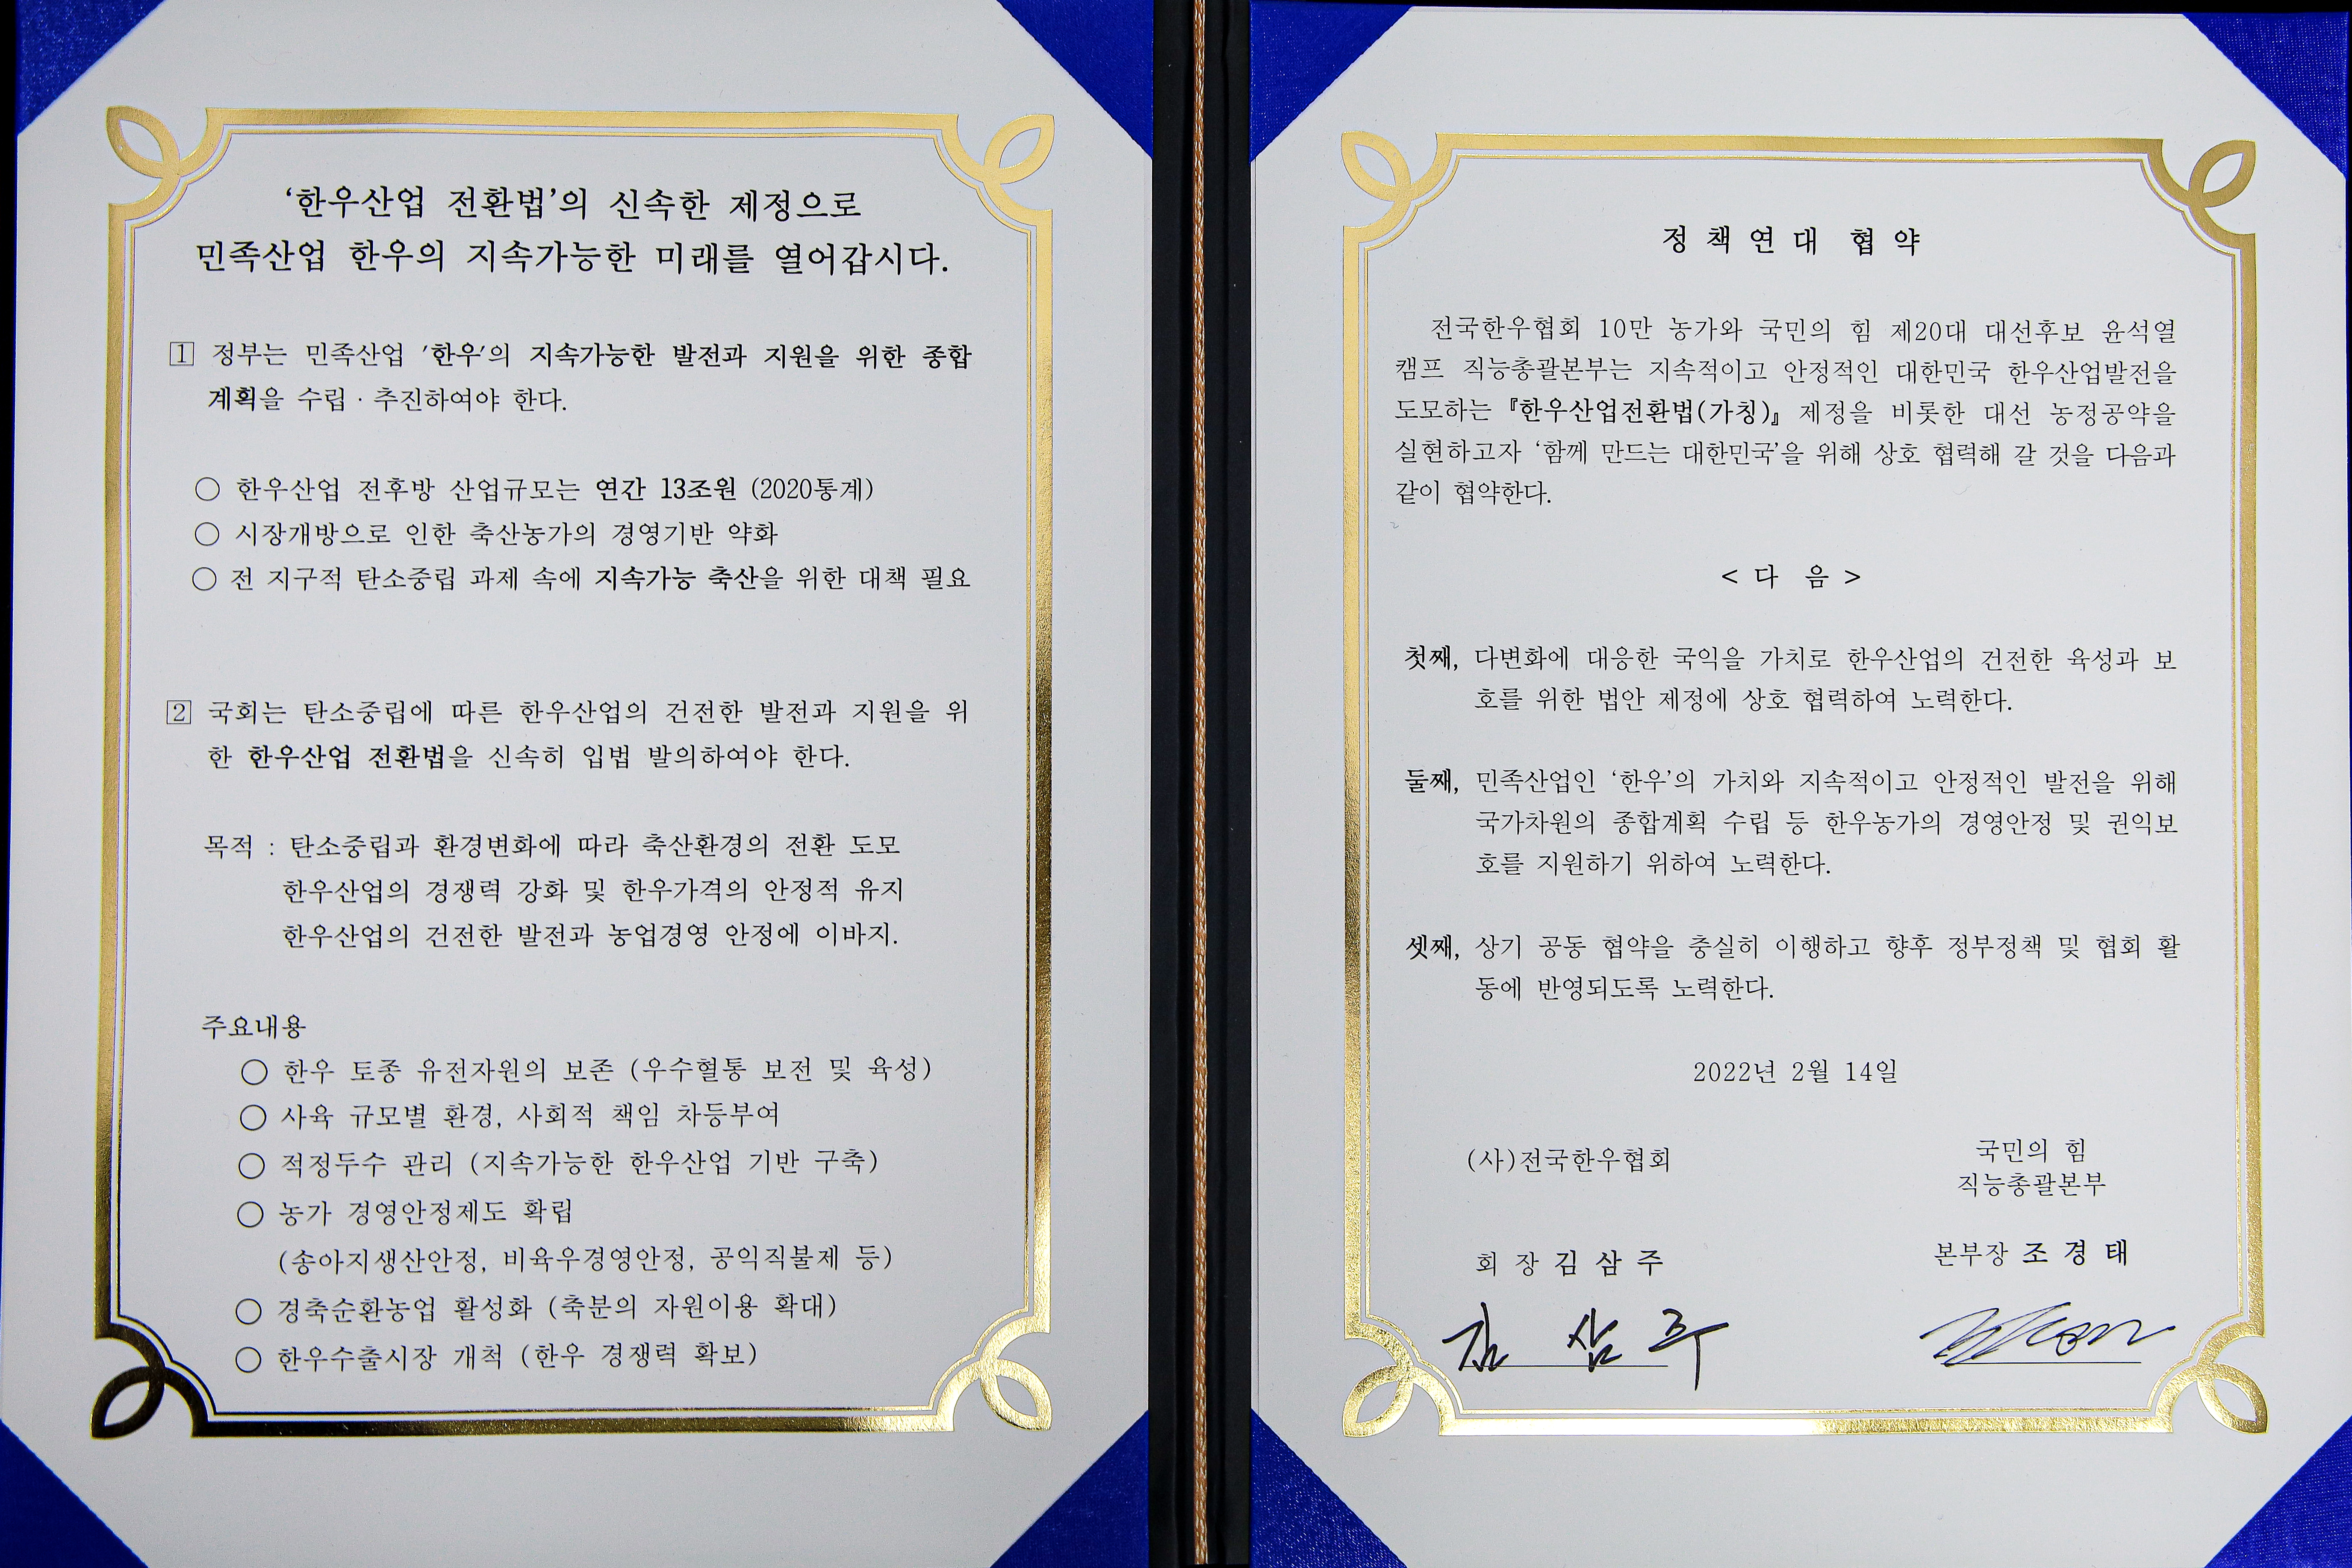 ‘한우산업 전환법’의 신속한 제정으로
민족산업 한우의 지속가능한 미래를 열어갑시다.
1 정부는 민족산업 '한우'의 지속가능한 발전과 지원을 위한 종합
계획을 수립·추진하여야 한다.
○ 한우산업 전후방 산업규모는 연간 13조원 (2020통계)
○ 시장개방으로 인한 축산농가의 경영기반 약화
○ 전 지구적 탄소중립 과제 속에 지속가능 축산을 위한 대책 필요
2 국회는 탄소중립에 따른 한우산업의 건전한 발전과 지원을 위
한 한우산업 전환법을 신속히 입법 발의하여야 한다.
목적 : 탄소중립과 환경변화에 따라 축산환경의 전환 도모
한우산업의 경쟁력 강화 및 한우가격의 안정적 유지
한우산업의 건전한 발전과 농업경영 안정에 이바지.
주요내용
○ 한우 토종 유전자원의 보존 (우수혈통 보전 및 육성)
○ 사육 규모별 환경, 사회적 책임 차등부여
○ 적정두수 관리 (지속가능한 한우산업 기반 구축)
○ 농가 경영안정제도 확립
(송아지생산안정, 비육우경영안정, 공익직불제 등)
○ 경축순환농업 활성화 (축분의 자원이용 확대)
○ 한우수출시장 개척 (한우 경쟁력 확보)
정책연대 협약
전국한우협회 10만 농가와 국민의 힘 제20대 대선후보 윤석열
캠프 직능총괄본부는 지속적이고 안정적인 대한민국 한우산업발전을
도모하는 『한우산업전환법(가칭)』 제정을 비롯한 대선 농정공약을
실현하고자 ‘함께 만드는 대한민국’을 위해 상호 협력해 갈 것을 다음과
같이 협약한다.
< 다 음 >
첫째, 다변화에 대응한 국익을 가치로 한우산업의 건전한 육성과 보
호를 위한 법안 제정에 상호 협력하여 노력한다.
둘째, 민족산업인 ‘한우’의 가치와 지속적이고 안정적인 발전을 위해
국가차원의 종합계획 수립 등 한우농가의 경영안정 및 권익보
호를 지원하기 위하여 노력한다.
셋째, 상기 공동 협약을 충실히 이행하고 향후 정부정책 및 협회 활
동에 반영되도록 노력한다.
2022년 2월 14일
(사)전국한우협회
회 장 김 삼 주
김 삼 주
국민의 힘
직능총괄본부
본부장 조 경 태